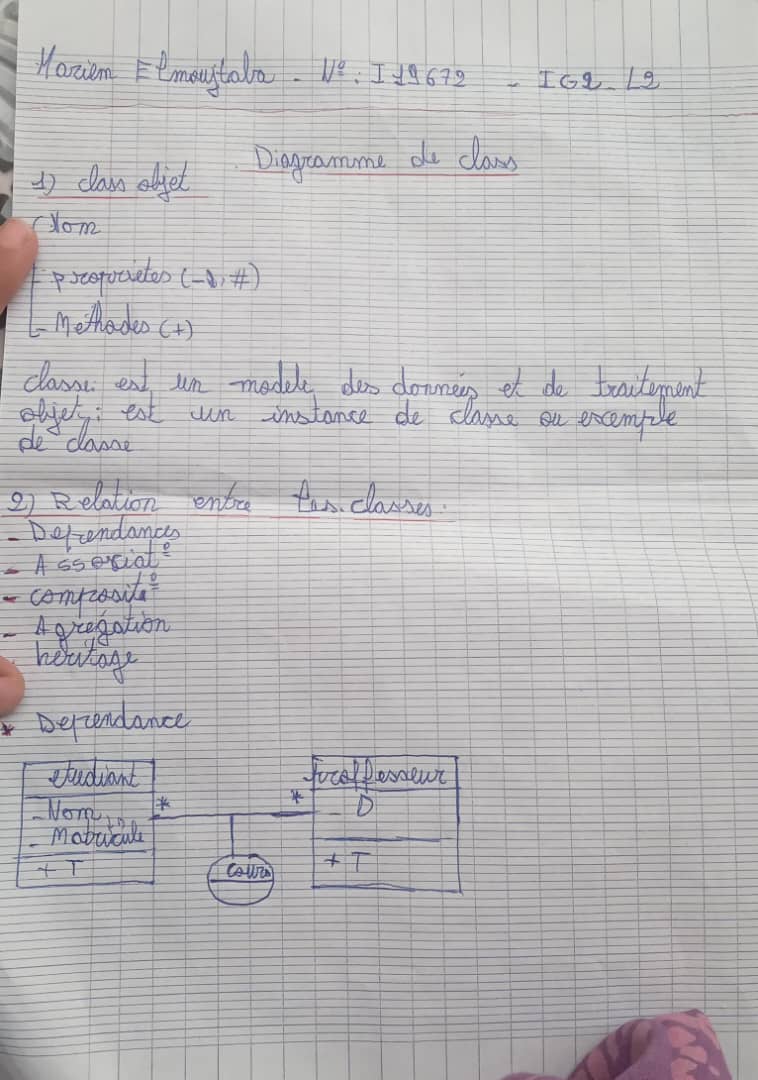 Mariem Elmoustaba - N° : I19672 - IG2-L2
Diagramme de class
1) class objet
Nom
proprietes (-, #)
- Methodes (+)
classe: est un modele des donnees et de traitement
objet: est un instance de classe ou excemple
de classe
2) Relation entre les classes.
- Dependances
- Associat°
- composit°
- Agregation
heritage
* Dependance
etudiant
- Nom
- Matricule
+ T
*
*
cours
proffesseur
- D
+ T